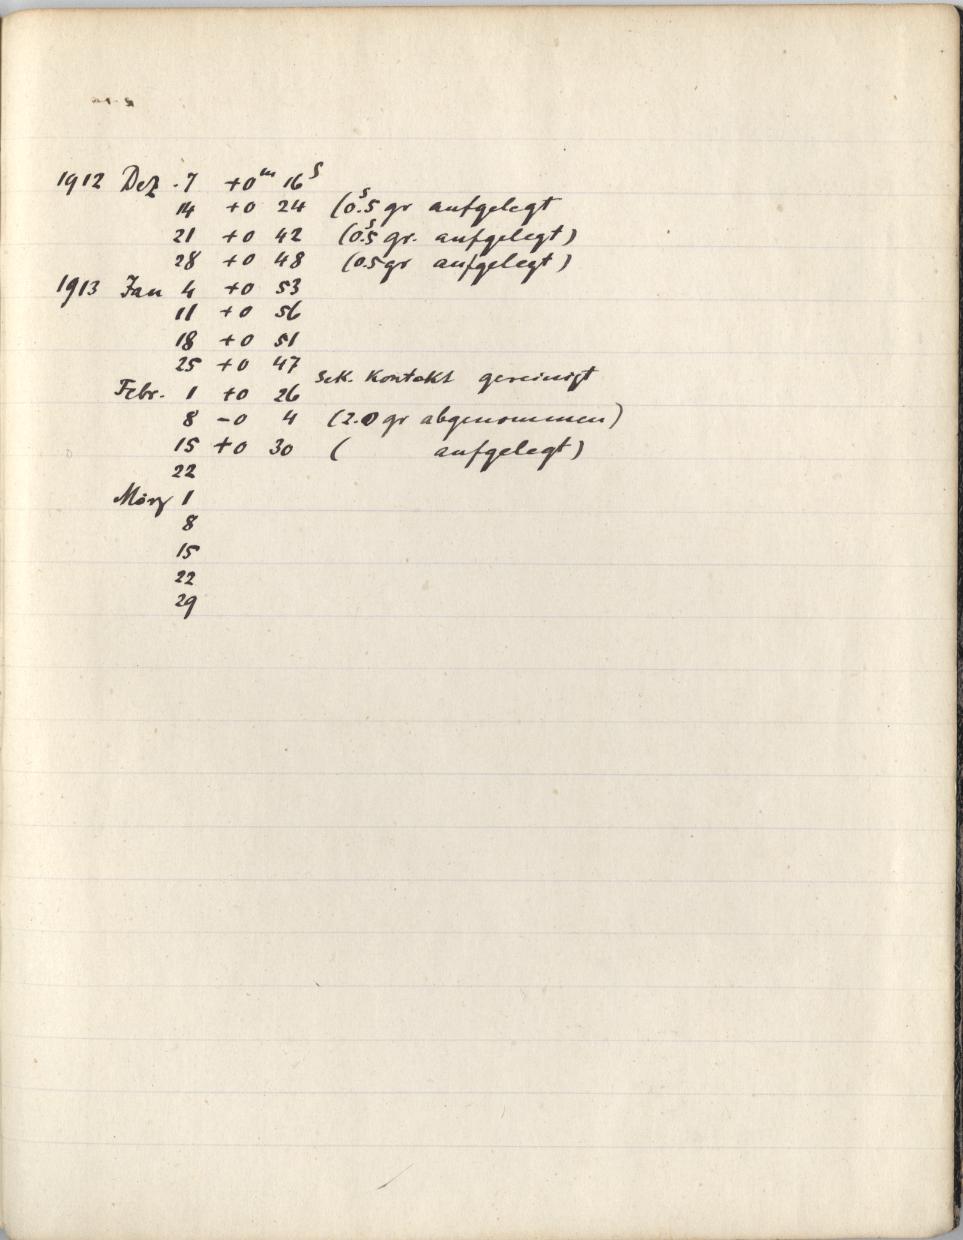 1912 Dez. 7 +0ᵐ 16ˢ
14 +0 24 (0.ˢ5 gr aufgelegt
21 +0 42 (0.ˢ5 gr. aufgelegt)
28 +0 48 (0.5 gr aufgelegt)
1913 Jan 4 +0 53
11 +0 56
18 +0 51
25 +0 47
Sek. Kontakt gereinigt
Febr. 1 +0 26
8 -0 4 (2.0 gr abgenommen)
15 +0 30 ( aufgelegt)
22
März 1
8
15
22
29